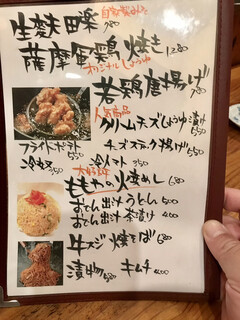 自家製みそ
生麸田楽 780
薩摩軍鶏焼き 1280
オリジナルしょうゆ
若鶏唐揚げ 780
人気商品
クリームチーズしょうゆ漬け 550
フライドポテト 550
チーズステック揚げ 550
冷奴 350
冷トマト 350
大好評
ももやの焼めし 680
おでん出汁うどん 550
おでん出汁茶漬け 400
牛スジ焼そば 680
漬物 350
キムチ 400